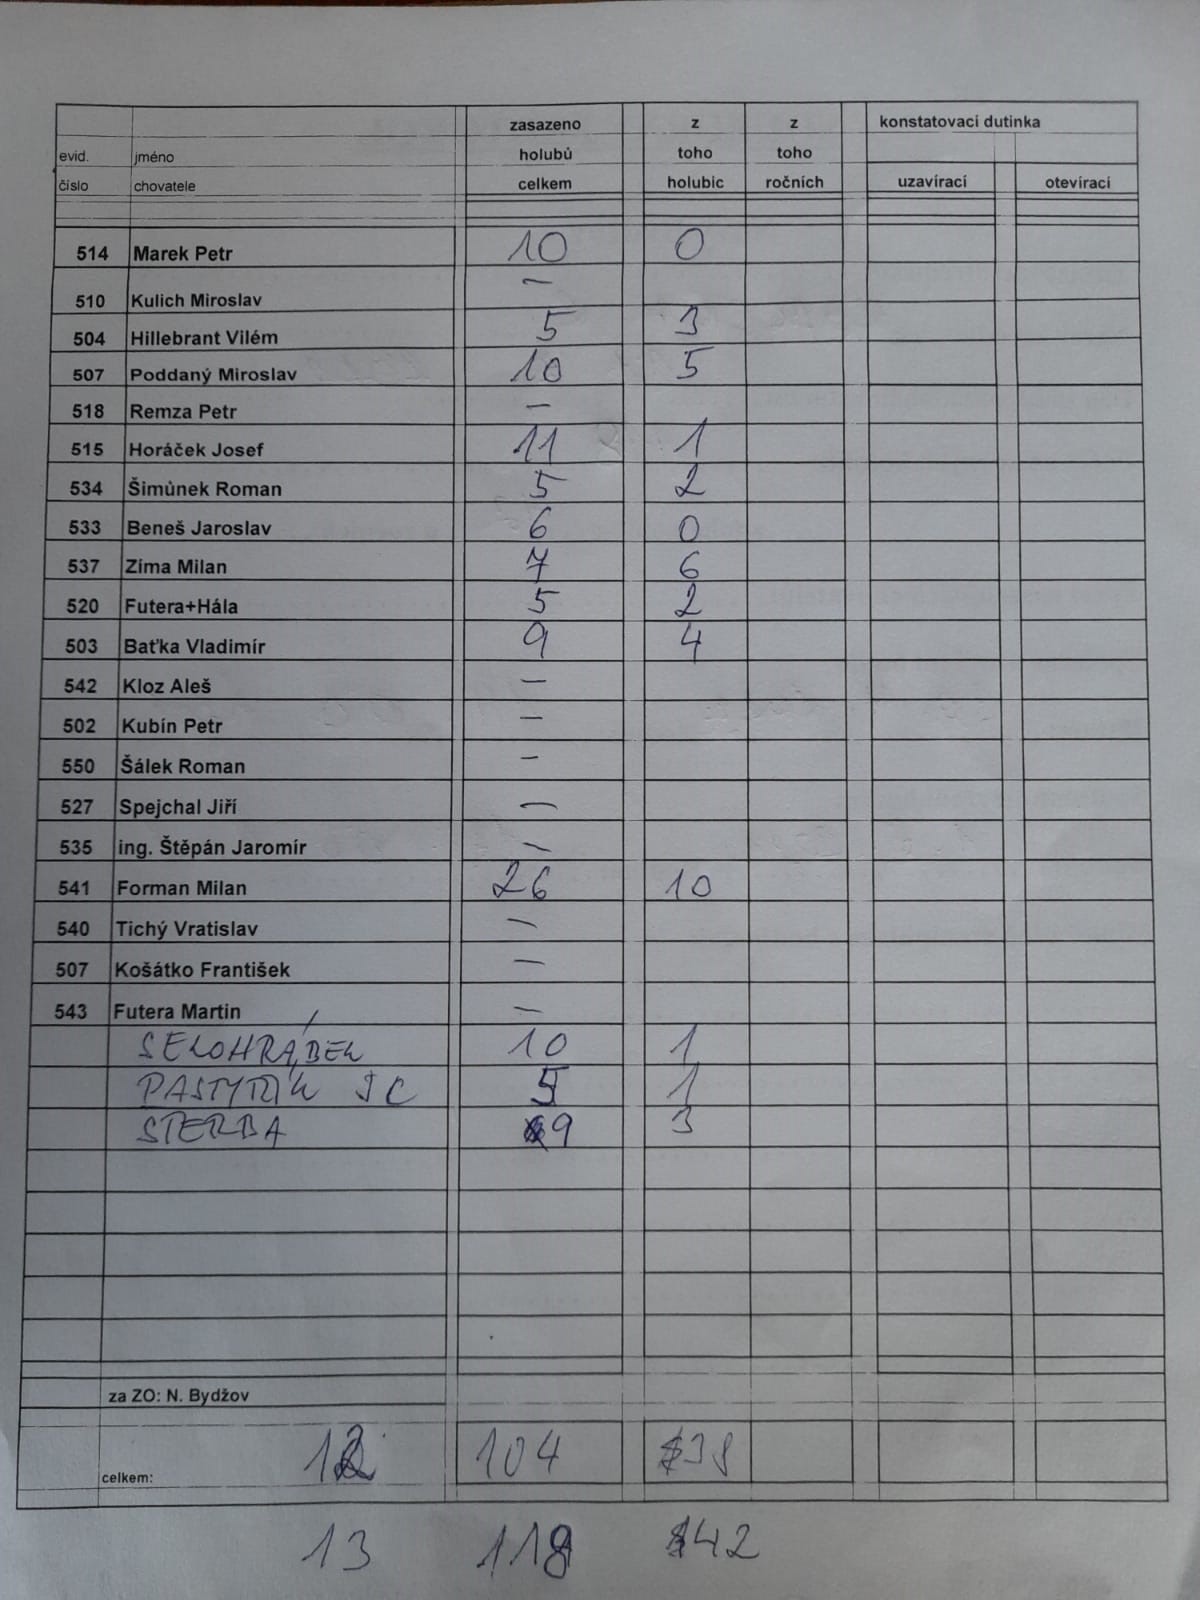 zasazeno z z konstatovací dutinka
evid. jméno holubů toho toho
číslo chovatele celkem holubic ročních uzavírací otevírací
514 Marek Petr 10 0
510 Kulich Miroslav –
504 Hillebrant Vilém 5 3
507 Poddaný Miroslav 10 5
518 Remza Petr –
515 Horáček Josef 11 1
534 Šimůnek Roman 5 2
533 Beneš Jaroslav 6 0
537 Zíma Milan 7 6
520 Futera+Hála 5 2
503 Baťka Vladimír 9 4
542 Kloz Aleš –
502 Kubín Petr –
550 Šálek Roman –
527 Spejchal Jiří –
535 ing. Štěpán Jaromír –
541 Forman Milan 26 10
540 Tichý Vratislav –
507 Košátko František –
543 Futera Martin –
SELOHRÁBEK 10 1
PASTYŘÍK 5 1
STERBA 9 3
za ZO: N. Bydžov
celkem: 12 104 38
13 118 42